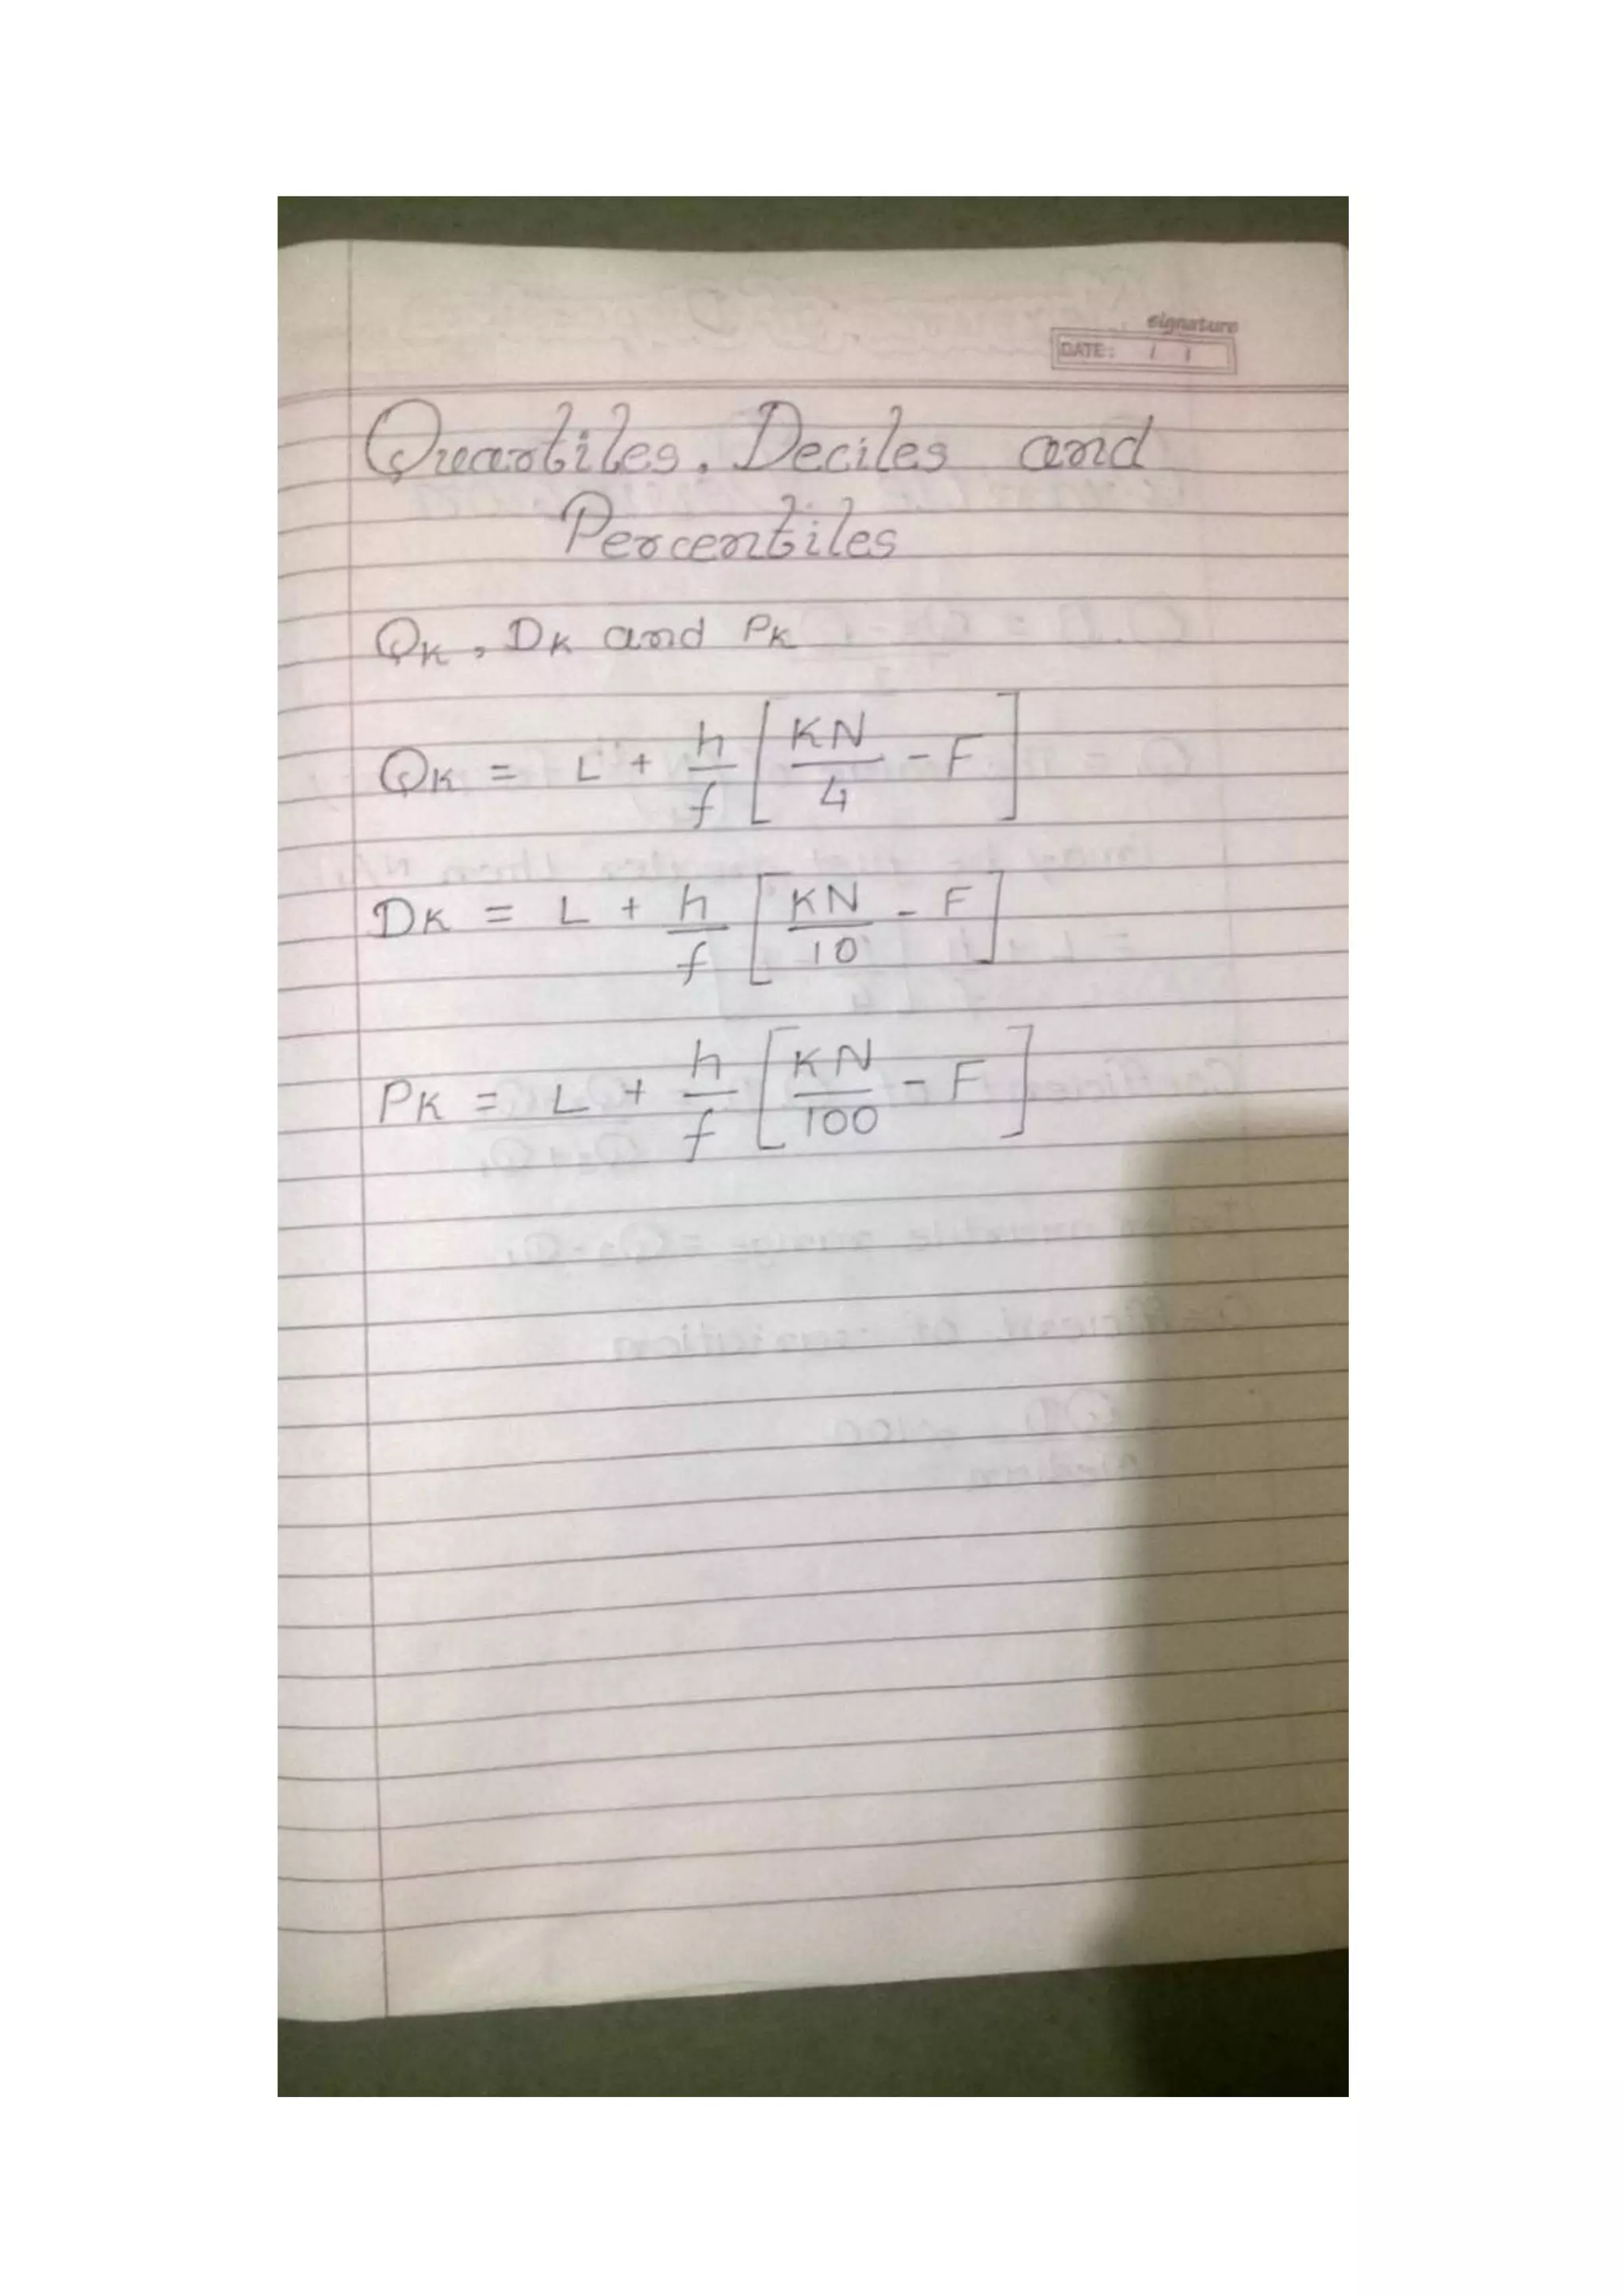 signature
DATE: / /
Quartiles, Deciles and
Percentiles
QK, DK and PK
QK = L + h/f [KN/4 - F]
DK = L + h/f [KN/10 - F]
PK = L + h/f [KN/100 - F]